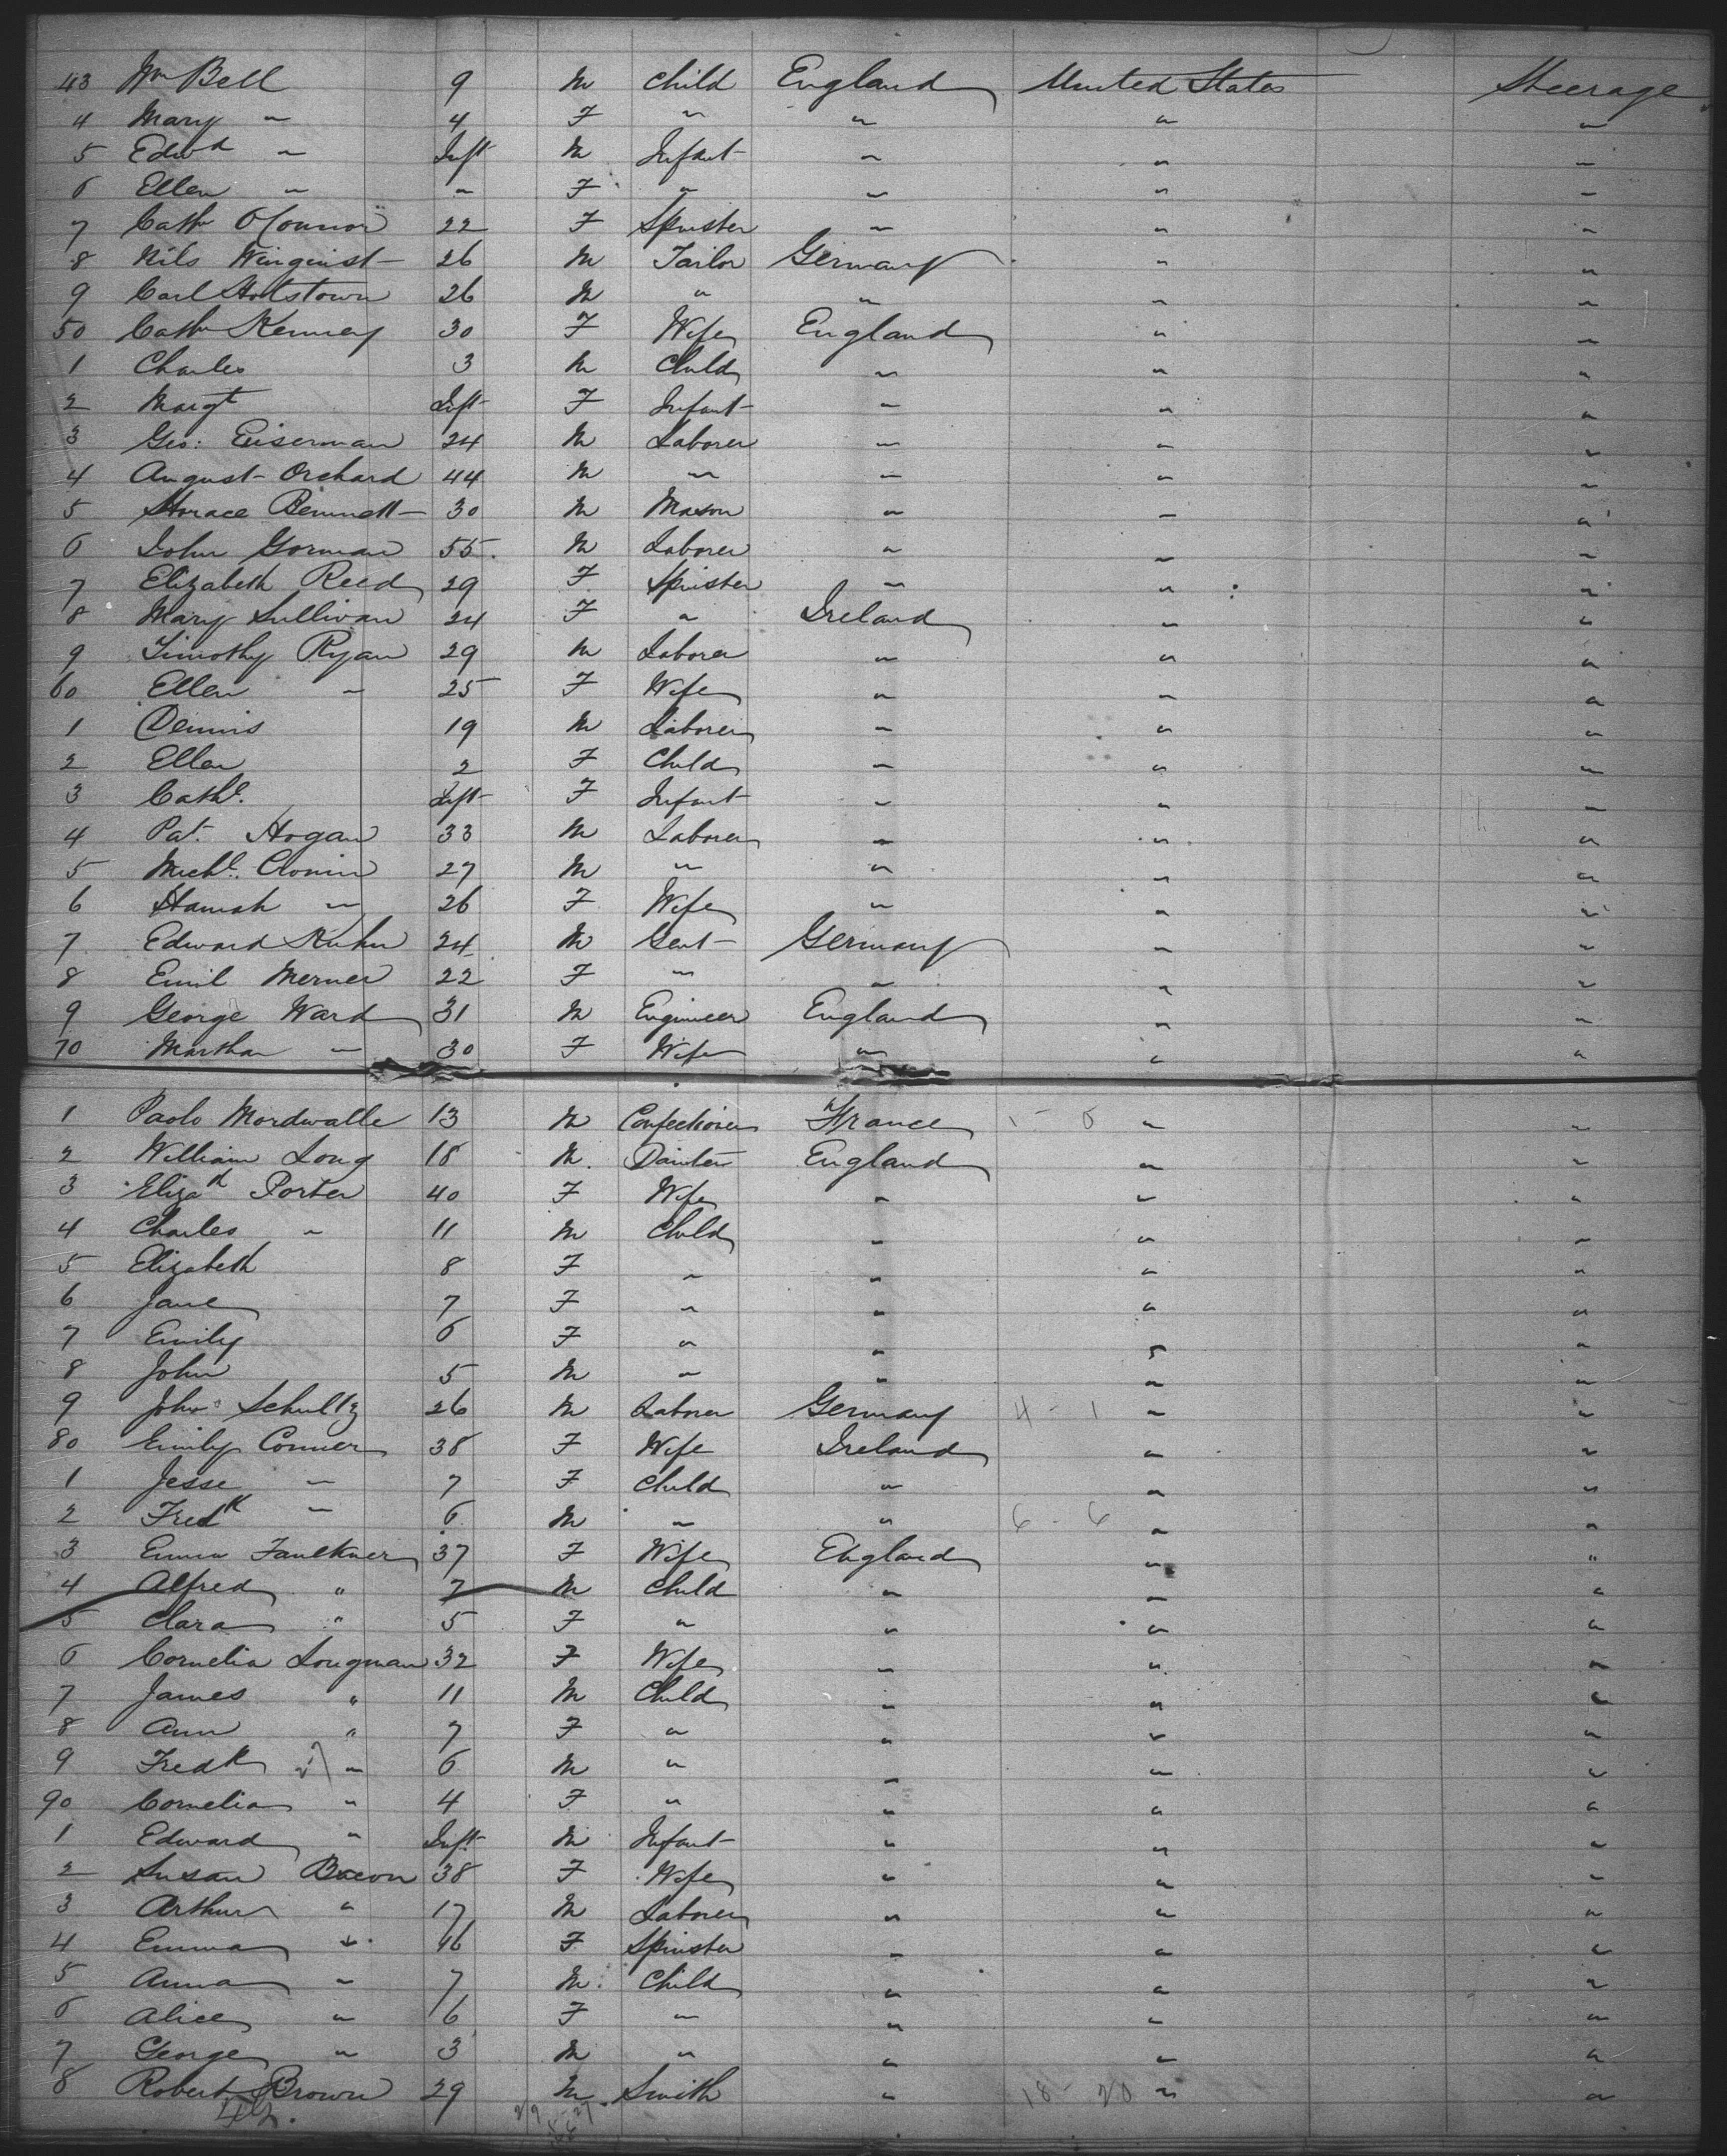 43 Wm Bell 9 M Child England United States Steerage
4 Mary " 4 F " " " "
5 Edwd " Inft M Infant " " "
6 Ellen " " F " " " "
7 Cath O'Connor 22 F Spinster " " "
8 Nils Winquist 26 M Tailor Germany " "
9 Carl 26 M " " " "
50 Cath Kenney 30 F Wife England " "
1 Charles 3 M Child " " "
2 Margt Inft F Infant " " "
3 Geo: Eiserman 24 M Laborer " " "
4 August Orchard 44 M " " " "
5 Horace Bennett 30 M Mason " " "
6 John Gorman 55 M Laborer " " "
7 Elizabeth Reed 29 F Spinster " " "
8 Mary Sullivan 24 F " Ireland " "
9 Timothy Ryan 29 M Laborer " " "
60 Ellen " 25 F Wife " " "
1 Dennis 19 M Laborer " " "
2 Ellen 2 F Child " " "
3 Cathe. Inft F Infant " " "
4 Pat. Hogan 33 M Laborer " " "
5 Michl. Cronin 27 M " " " "
6 Hannah " 26 F Wife " " "
7 Edward Kuhn 24 M Gent Germany " "
8 Emil Merner 22 F " " " "
9 George Ward 31 M Engineer England " "
70 Martha " 30 F Wife " " "
1 Paolo Mordwalle 13 M Confectioner France " "
2 William Long 18 M. Painter England " "
3 Elizath Porter 40 F Wife " " "
4 Charles " 11 M Child " " "
5 Elizabeth 8 F " " " "
6 Jane 7 F " " " "
7 Emily 6 F " " " "
8 John 5 M " " " "
9 John Schultz 26 M Laborer Germany 4 - 1 " "
80 Emily Conner 38 F Wife Ireland " "
1 Jesse " 7 F Child " " "
2 Fredk " 6 M " " 6 - 6 " "
3 Emma Faulkner 37 F Wife England " "
4 Alfred " 7 M Child " " "
5 Clara " 5 F " " " "
6 Cornelia Longman 32 F Wife " " "
7 James " 11 M Child " " "
8 Ann " 7 F " " " "
9 Fredk " 6 M " " " "
90 Cornelia " 4 F " " " "
1 Edward " Inft M Infant " " "
2 Susan Bacon 38 F Wife " " "
3 Arthur " 17 M Laborer " " "
4 Emma " 16 F Spinster " " "
5 Anna " 7 M. Child " " "
6 Alice " 6 F " " " "
7 George " 3 M " " " "
8 Robert Brown 29 M Smith " 18 - 20 " "